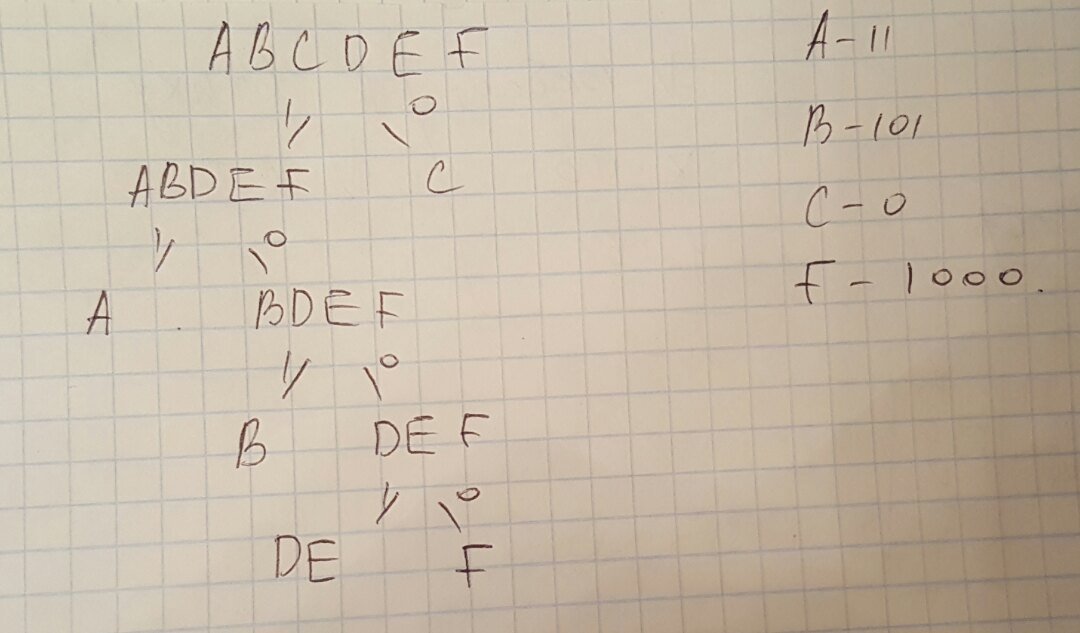 ABCDEF
1 0
ABDEF C
1 0
A BDEF
1 0
B DEF
1 0
DE F
A-11
B-101
C-0
F-1000.